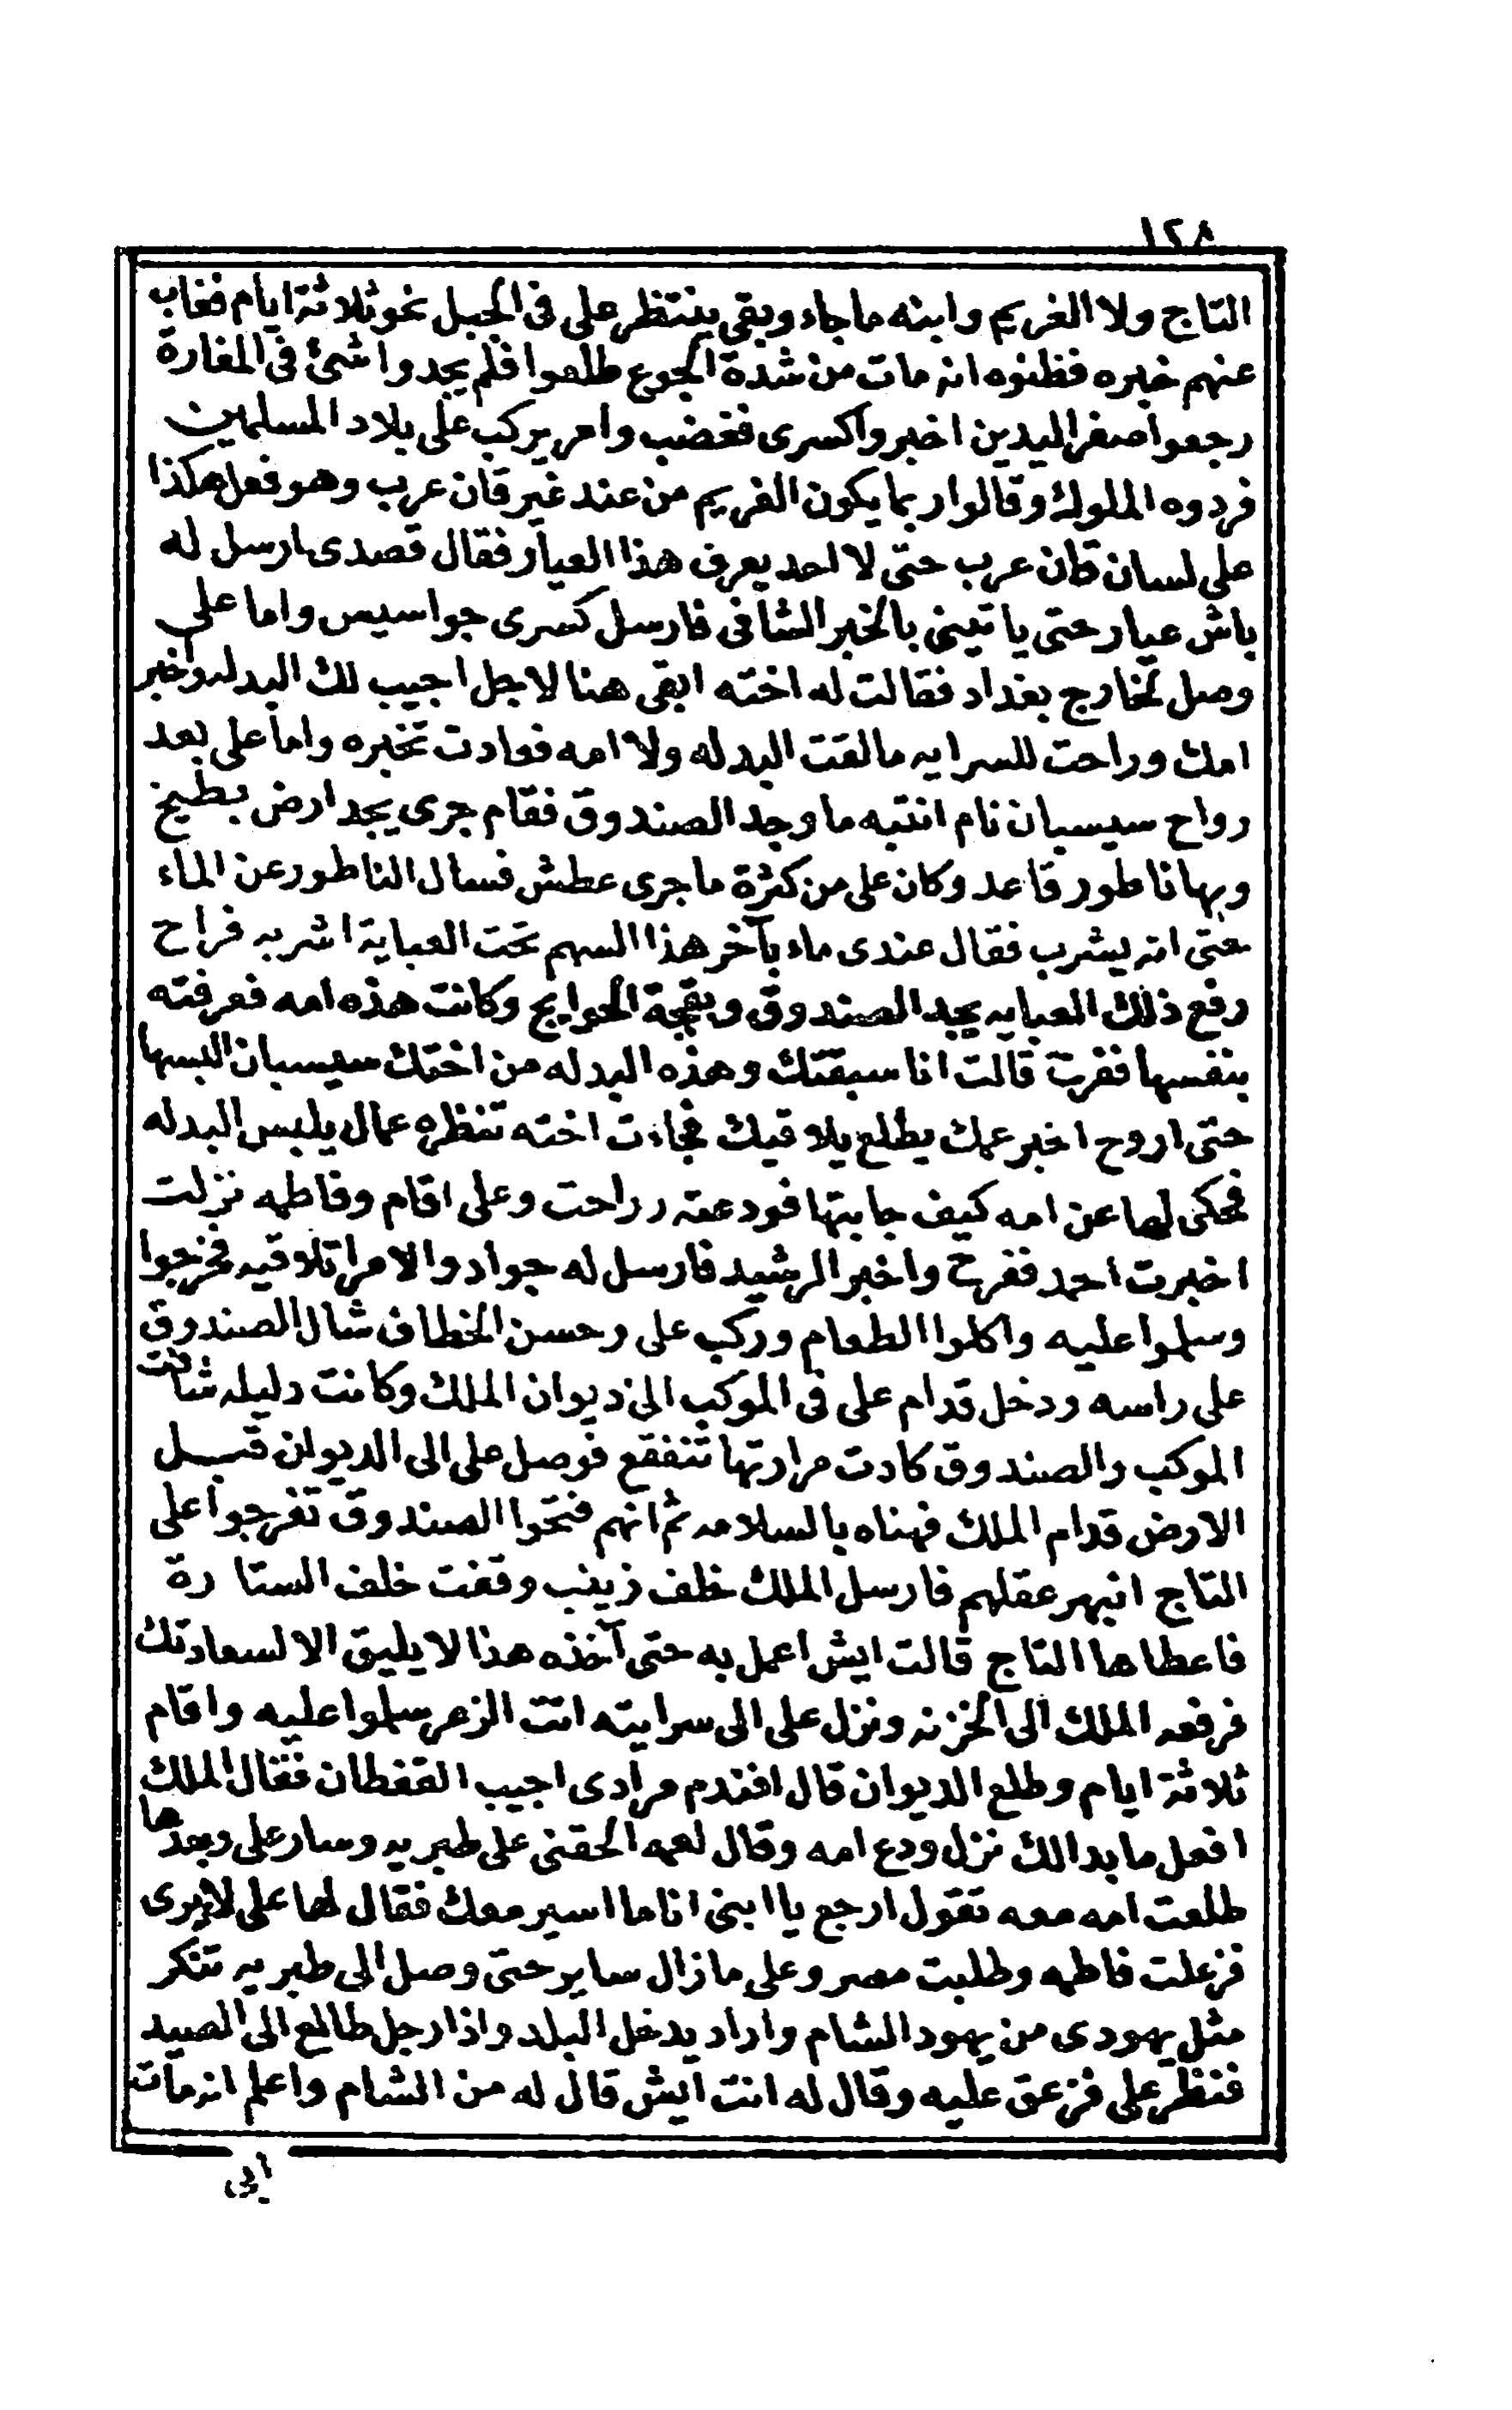 ١٢٨
التاج ولا الغريم وابنه ما جاء وبقى ينتظر على فى الجبل نحو ثلاثة ايام فغاب
عنهم خبره فظنوه انه مات من شدة الجوع طلعوا فلم يجدوا شئ فى المغارة
رجعوا صفر اليدين اخبروا كسرى فغضب وامر يركب على بلاد المسلمين
فردوه الملوك وقالوا ربما يكون الغريم من عند غير قان عرب وهو فعل هكذا
على لسان قان عرب حتى لا احد يعرف هذا العيار فقال قصدى ارسل له
باش عيار حتى ياتينى بالخبر الشافى فارسل كسرى جواسيس واما على
وصل لخارج بغداد فقالت له اخته ابقى هنا لاجل اجيب لك البدله واخبر
امك وراحت للسرايه ما لقت البدله ولا امه فعادت تخبره واما على بعد
رواح سيسبان نام انتبه ما وجد الصندوق فقام جرى يجد ارض بطيخ
وبها ناطور قاعد وكان على من كثرة ما جرى عطش فسال الناطور عن الماء
حتى انه يشرب فقال عندى ماء بآخر هذا السهم تحت العباية اشربه فراح
رفع ذلك العبايه يجد الصندوق وبقجة الحوايج وكانت هذه امه فعرفته
بنفسها ففرح قالت انا سبقتك وهذه البدله من اختك سيسبان البسها
حتى اروح اخبر عمك يطلع يلاقيك فجاءت اخته تنظره عمال يلبس البدله
فحكى لها عن امه كيف جابتها فودعته وراحت وعلى اقام وفاطمه نزلت
اخبرت احمد ففرح واخبر الرشيد فارسل له جواد والامرا تلاقيه فخرجوا
وسلموا عليه واكلوا الطعام وركب على وحسن الخطاف شال الصندوق
على راسه ودخل قدام على فى الموكب الى ديوان الملك وكانت دليله شافت
الموكب والصندوق كادت مرارتها تنفقع فوصل على الى الديوان قبل
الارض قدام الملك فهناه بالسلامه ثم انهم فتحوا الصندوق تفرجوا على
التاج انبهر عقلهم فارسل الملك خلف زينب وقفت خلف الستارة
فاعطاها التاج قالت ايش اعمل به حتى آخذه هذا لا يليق الا لسعادتك
فرفعه الملك الى الخزنه ونزل على الى سرايته اتت الزعر سلموا عليه واقام
ثلاثة ايام وطلع الديوان قال افندم مرادى اجيب القفطان فقال الملك
افعل ما بدالك نزل ودع امه وقال لعمه الحقنى على طبريه وسار على وبعدها
طلعت امه معه تقول ارجع يا ابنى انا ما اسير معك فقال لها على لاتبرى
فزعلت فاطمه وطلبت مصر وعلى مازال ساير حتى وصل الى طبريه تنكر
مثل يهودى من يهود الشام واراد يدخل البلد واذا رجل طالع الى الصيد
فنظر على فزعق عليه وقال له انت ايش قال له من الشام واعلم انه مات
ابى